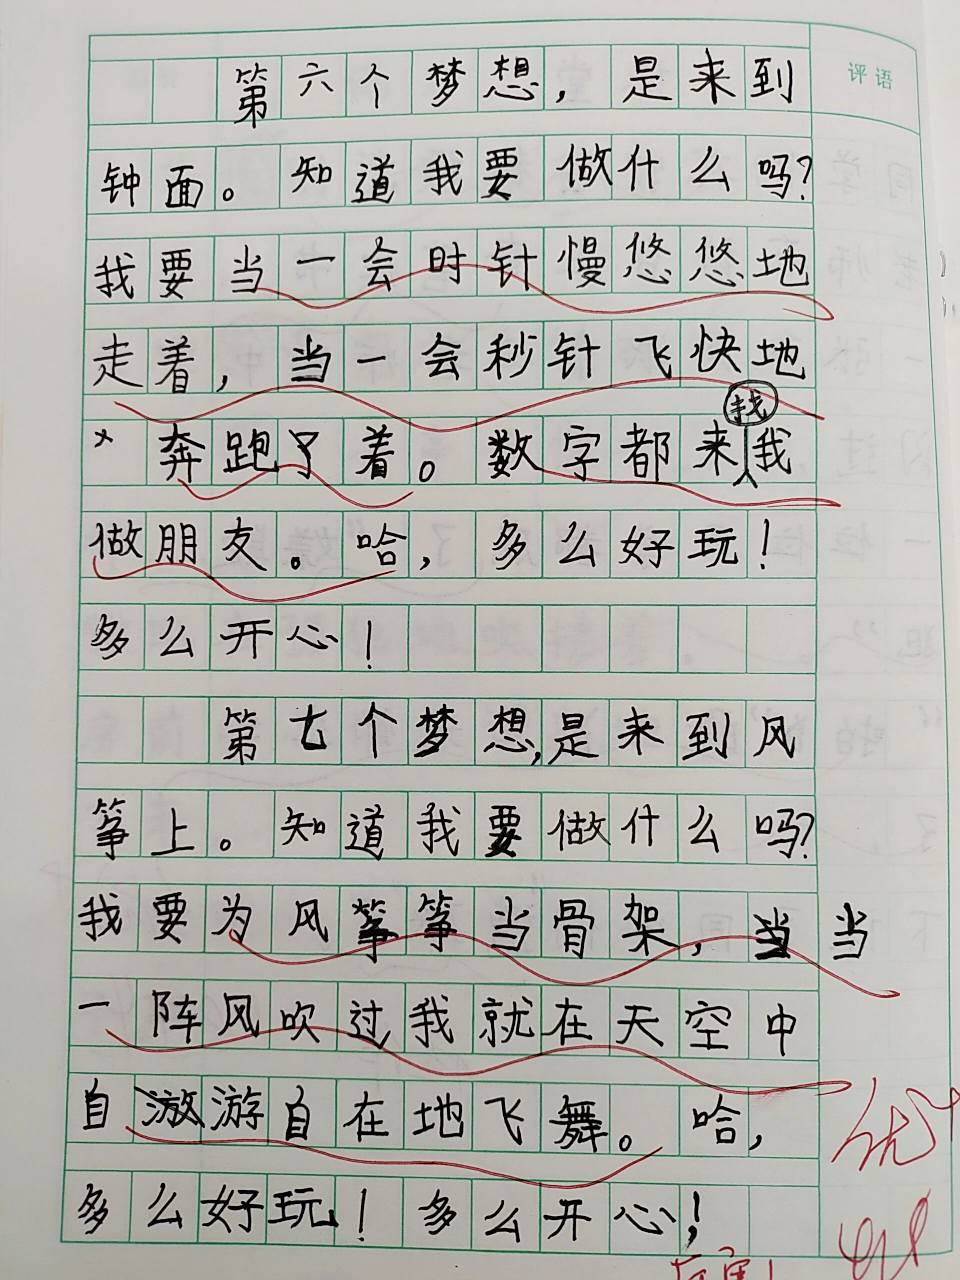 评语
第六个梦想，是来到
钟面。知道我要做什么吗？
我要当一会时针慢悠悠地
走着，当一会秒针飞快地
奔跑了着。数字都来找我
做朋友。哈，多么好玩！
多么开心！
第七个梦想，是来到风
筝上。知道我要做什么吗？
我要为风筝当骨架，当
一阵风吹过我就在天空中
自游自在地飞舞。哈，
多么好玩！多么开心！
优+